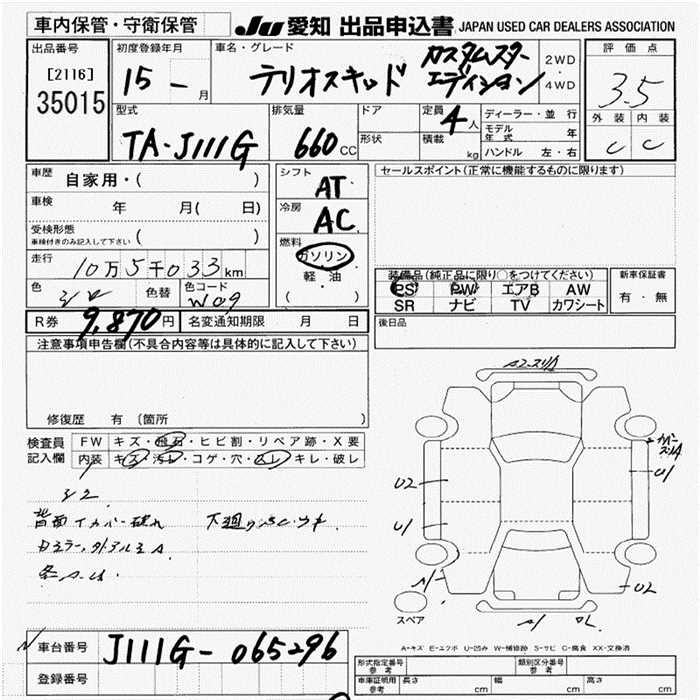 車内保管・守衛保管
JU 愛知 出品申込書 JAPAN USED CAR DEALERS ASSOCIATION
出品番号
[2116]
35015
初度登録年月
15 - 月
車名・グレード
テリオスキッド
カスタムスター
エディション
2WD
・
4WD
評価点
3.5
外装 内装
C C
型式
TA-J111G
排気量
660 CC
ドア
形状
定員
4人
積載
kg
ディーラー・並行
モデル年式 年
ハンドル 左・右
車歴 自家用・( )
車検 年 月( 日)
受検形態
車検付きのみ記入して下さい ( )
走行 10万5千033km
色 シロ 色替 色コード W09
シフト
AT
冷房
AC
燃料
ガソリン
軽・油
( )
セールスポイント(正常に機能するものに限ります)
装備品(純正品に限り○をつけてください)
PS PW エアB AW
SR ナビ TV カワシート
新車保証書
有・無
R券 9,870円 名変通知期限 月 日
後日品
注意事項申告欄(不具合内容等は具体的に記入して下さい)
修復歴 有 (箇所 )
検査員記入欄
FW キズ・飛石・ヒビ割・リペア跡・X要
内装 キズ・汚レ・コゲ・穴・スレ・キレ・破レ
背面タイヤカバー破れ
下廻りサビ
カラー
A2・スリA
カバースリA
U1
U2
U1
A1
U2
A1
スペア
A-キズ E-エクボ U-凹み W-補修跡 S-サビ C-腐食 XX-交換済
車台番号 J111G-065296
登録番号
形式指定番号 参考
類別区分番号 参考
車庫証明用 参考 長さ cm 幅 cm 高さ cm